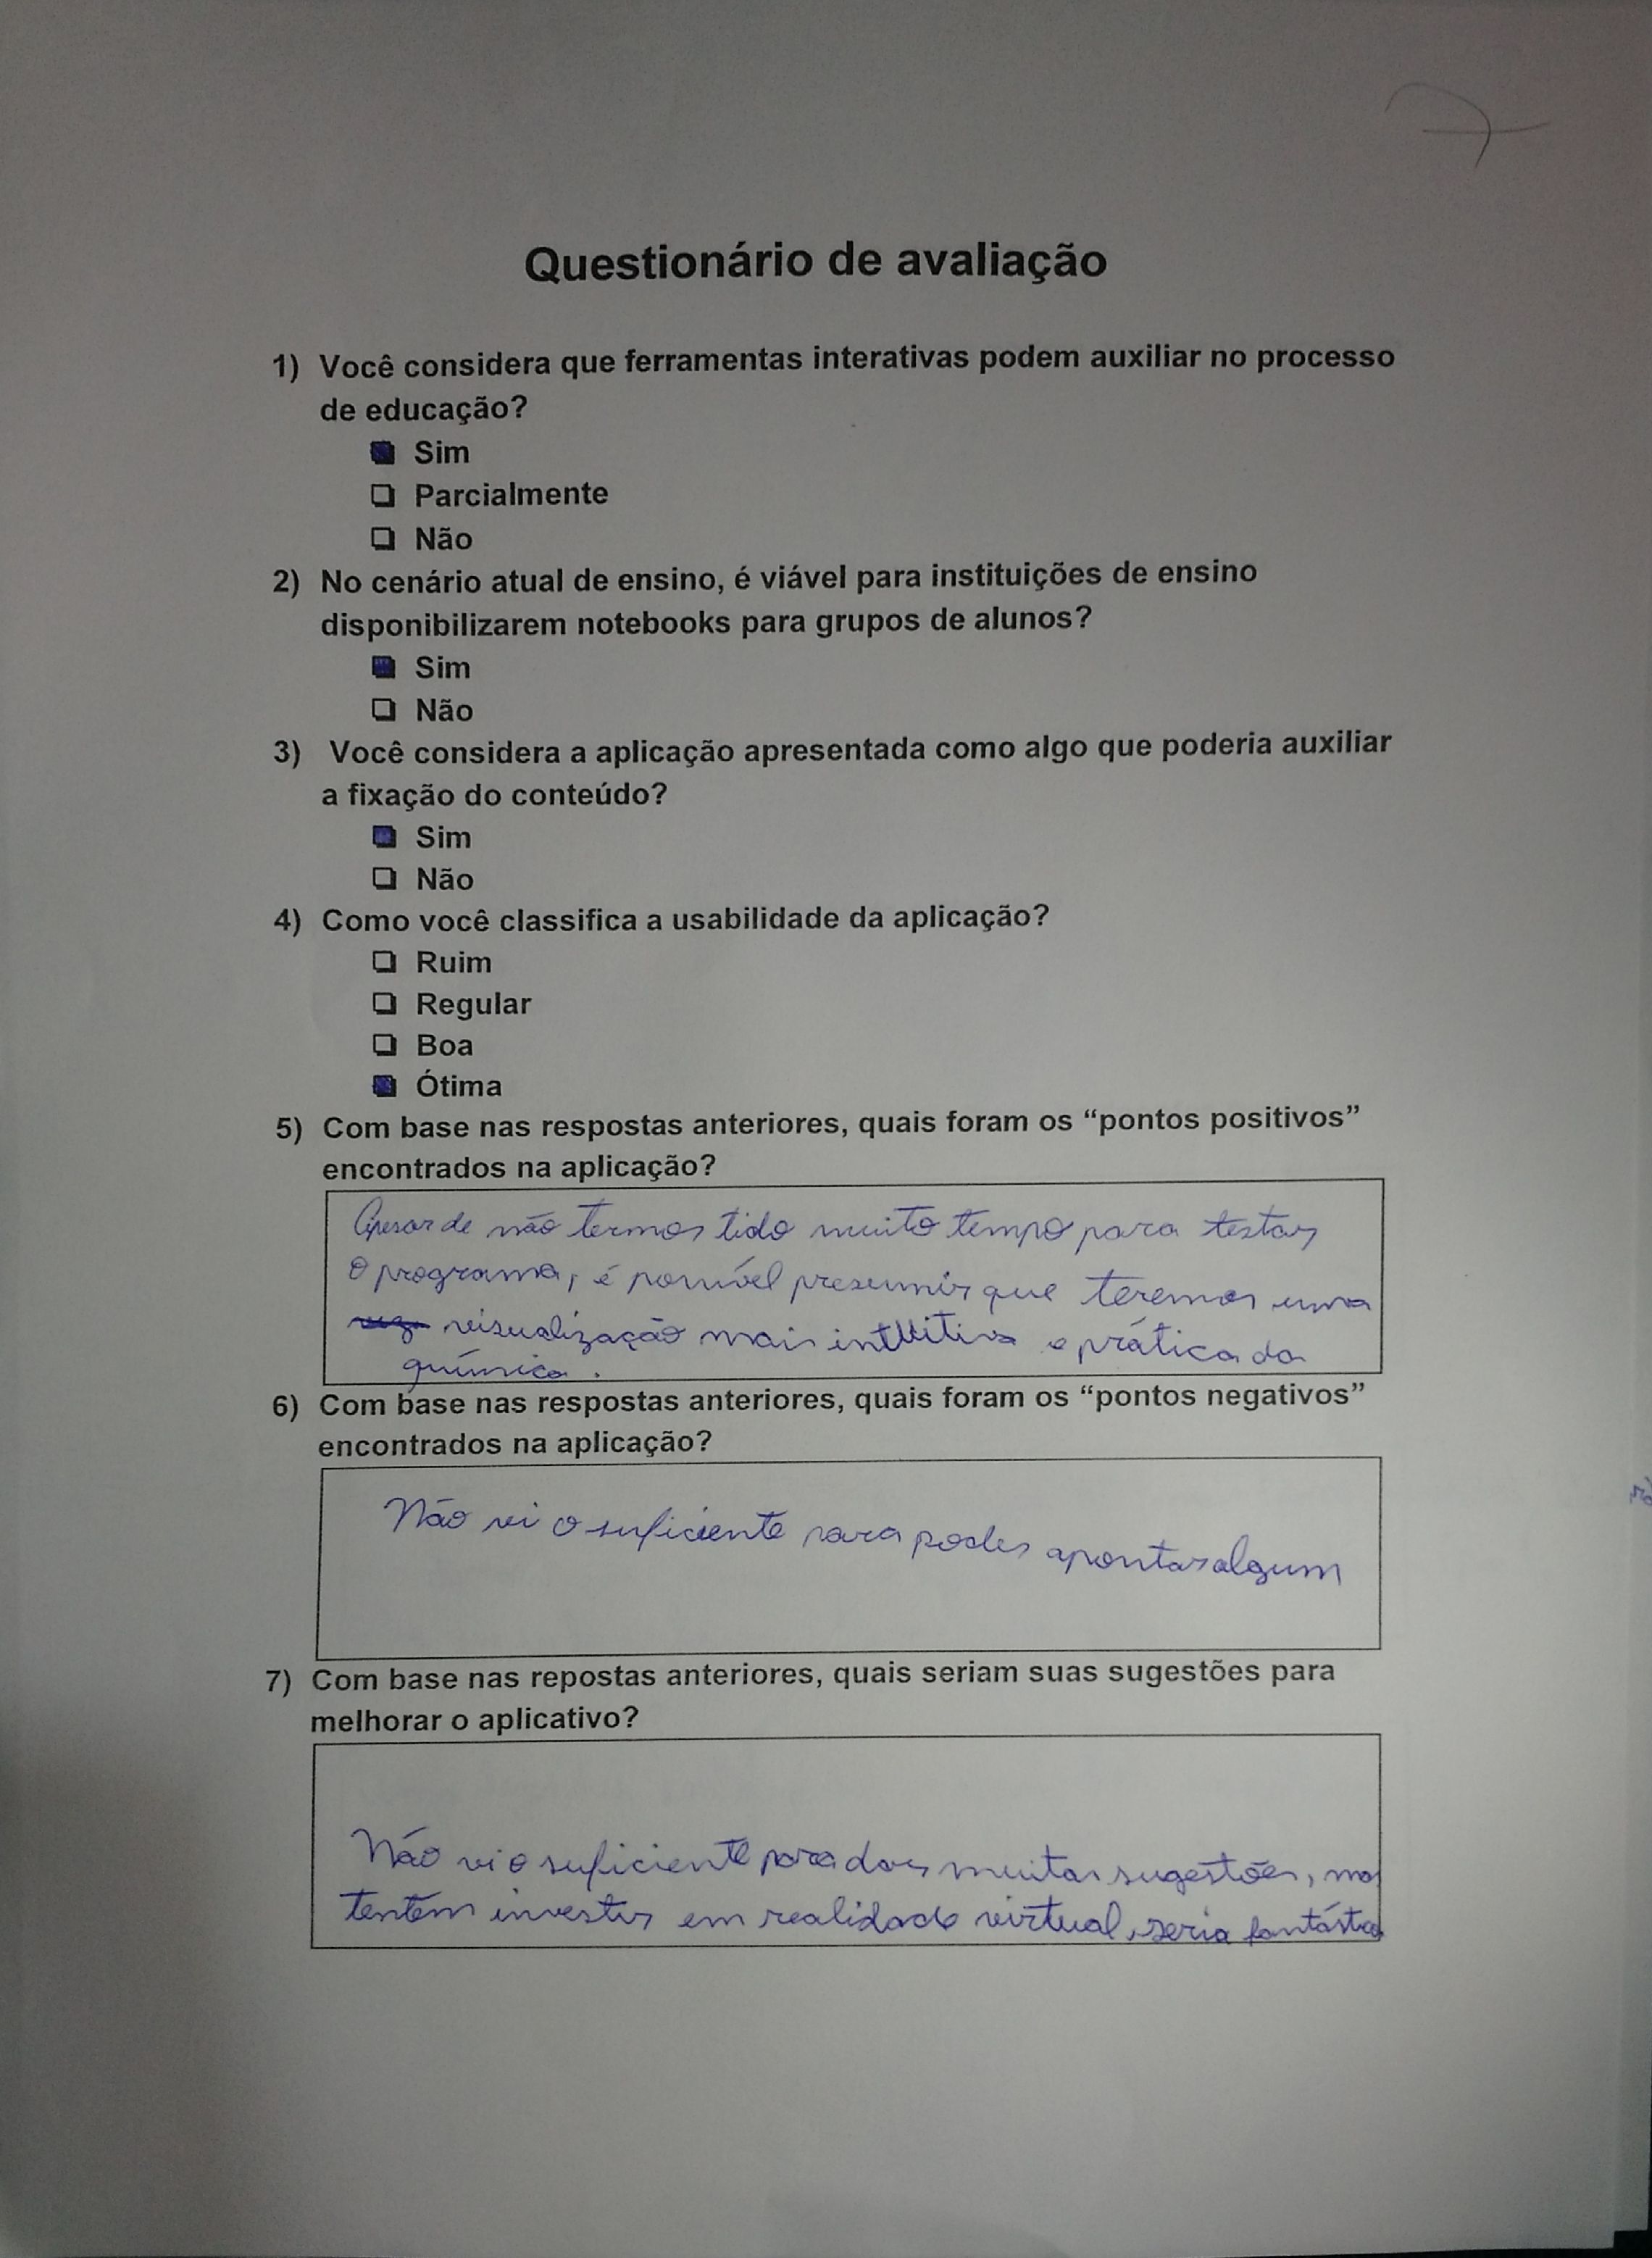 7
Questionário de avaliação
1) Você considera que ferramentas interativas podem auxiliar no processo
de educação?
Sim
Parcialmente
Não
2) No cenário atual de ensino, é viável para instituições de ensino
disponibilizarem notebooks para grupos de alunos?
Sim
Não
3) Você considera a aplicação apresentada como algo que poderia auxiliar
a fixação do conteúdo?
Sim
Não
4) Como você classifica a usabilidade da aplicação?
Ruim
Regular
Boa
Ótima
5) Com base nas respostas anteriores, quais foram os “pontos positivos”
encontrados na aplicação?
Apesar de não termos tido muito tempo para testar
o programa, é possível presumir que teremos uma
visualização mais intuitiva e prática da
química.
6) Com base nas respostas anteriores, quais foram os “pontos negativos”
encontrados na aplicação?
Não vi o suficiente para poder apontar algum
7) Com base nas repostas anteriores, quais seriam suas sugestões para
melhorar o aplicativo?
Não vi o suficiente para dar muitas sugestões, mas
tentem investir em realidade virtual, seria fantástico